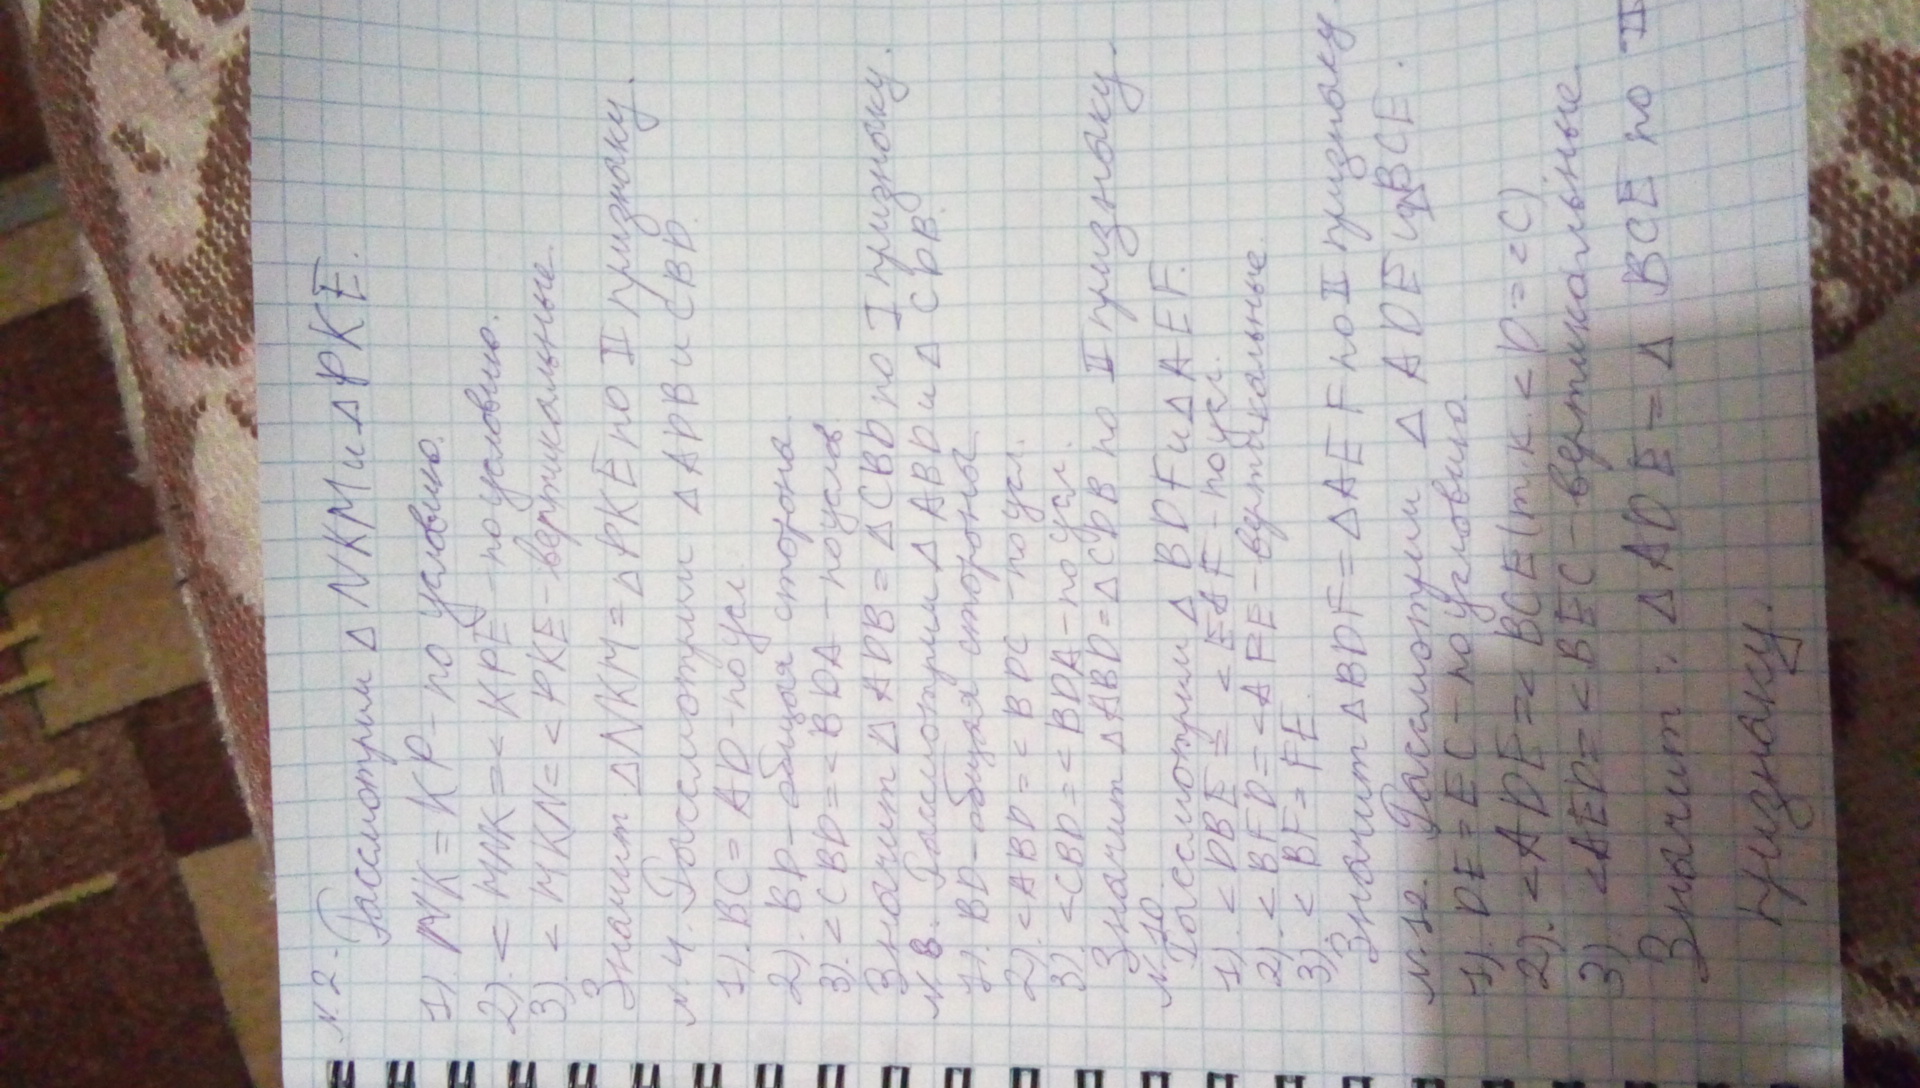 N. 2.
Рассмотрим Δ NKM и Δ PKE.
1). NK = KP - по условию.
2). < MNK = < KPE - по условию.
3). < MKN = < PKE - вертикальные.
Значит ΔNKM = ΔPKE по II признаку.
N. 4. Рассмотрим Δ ADB и CBD.
1). BC = AD - по усл.
2). BD - общая сторона
3). < CBD = < BDA - по услов
Значит Δ ADB = Δ CBD по I признаку.
N 8. Рассмотрим Δ ABD и Δ CDB.
1). BD - общая стороны
2). < ABD = < BDC - по усл.
3). < CBD = < BDA - по усл.
Значит Δ ABD = Δ CDB по II признаку.
N. 10
Рассмотрим Δ BDF и Δ AEF.
1). < DBE = < EAF - по усл.
2). < BFD = < AFE - вертикальные.
3). < BF = FE.
Значит Δ BDF = Δ AEF по II признаку.
N. 12. Рассмотрим Δ ADE и BCE.
1). DE = EC - по условию
2). < ADE = < BCE (т.к. < D = < C)
3) < AED = < BEC - вертикальные
Значит : Δ ADE = Δ BCE по II
признаку.